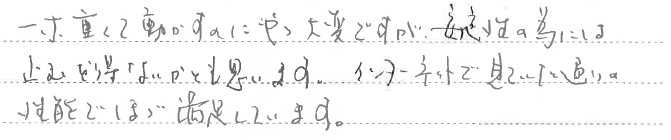 一寸重くて動かすのにやゝ大変ですが、安定性の為には
止むを得ないかとも思います。インターネットで見ていた通りの
性能でほゞ満足しています。